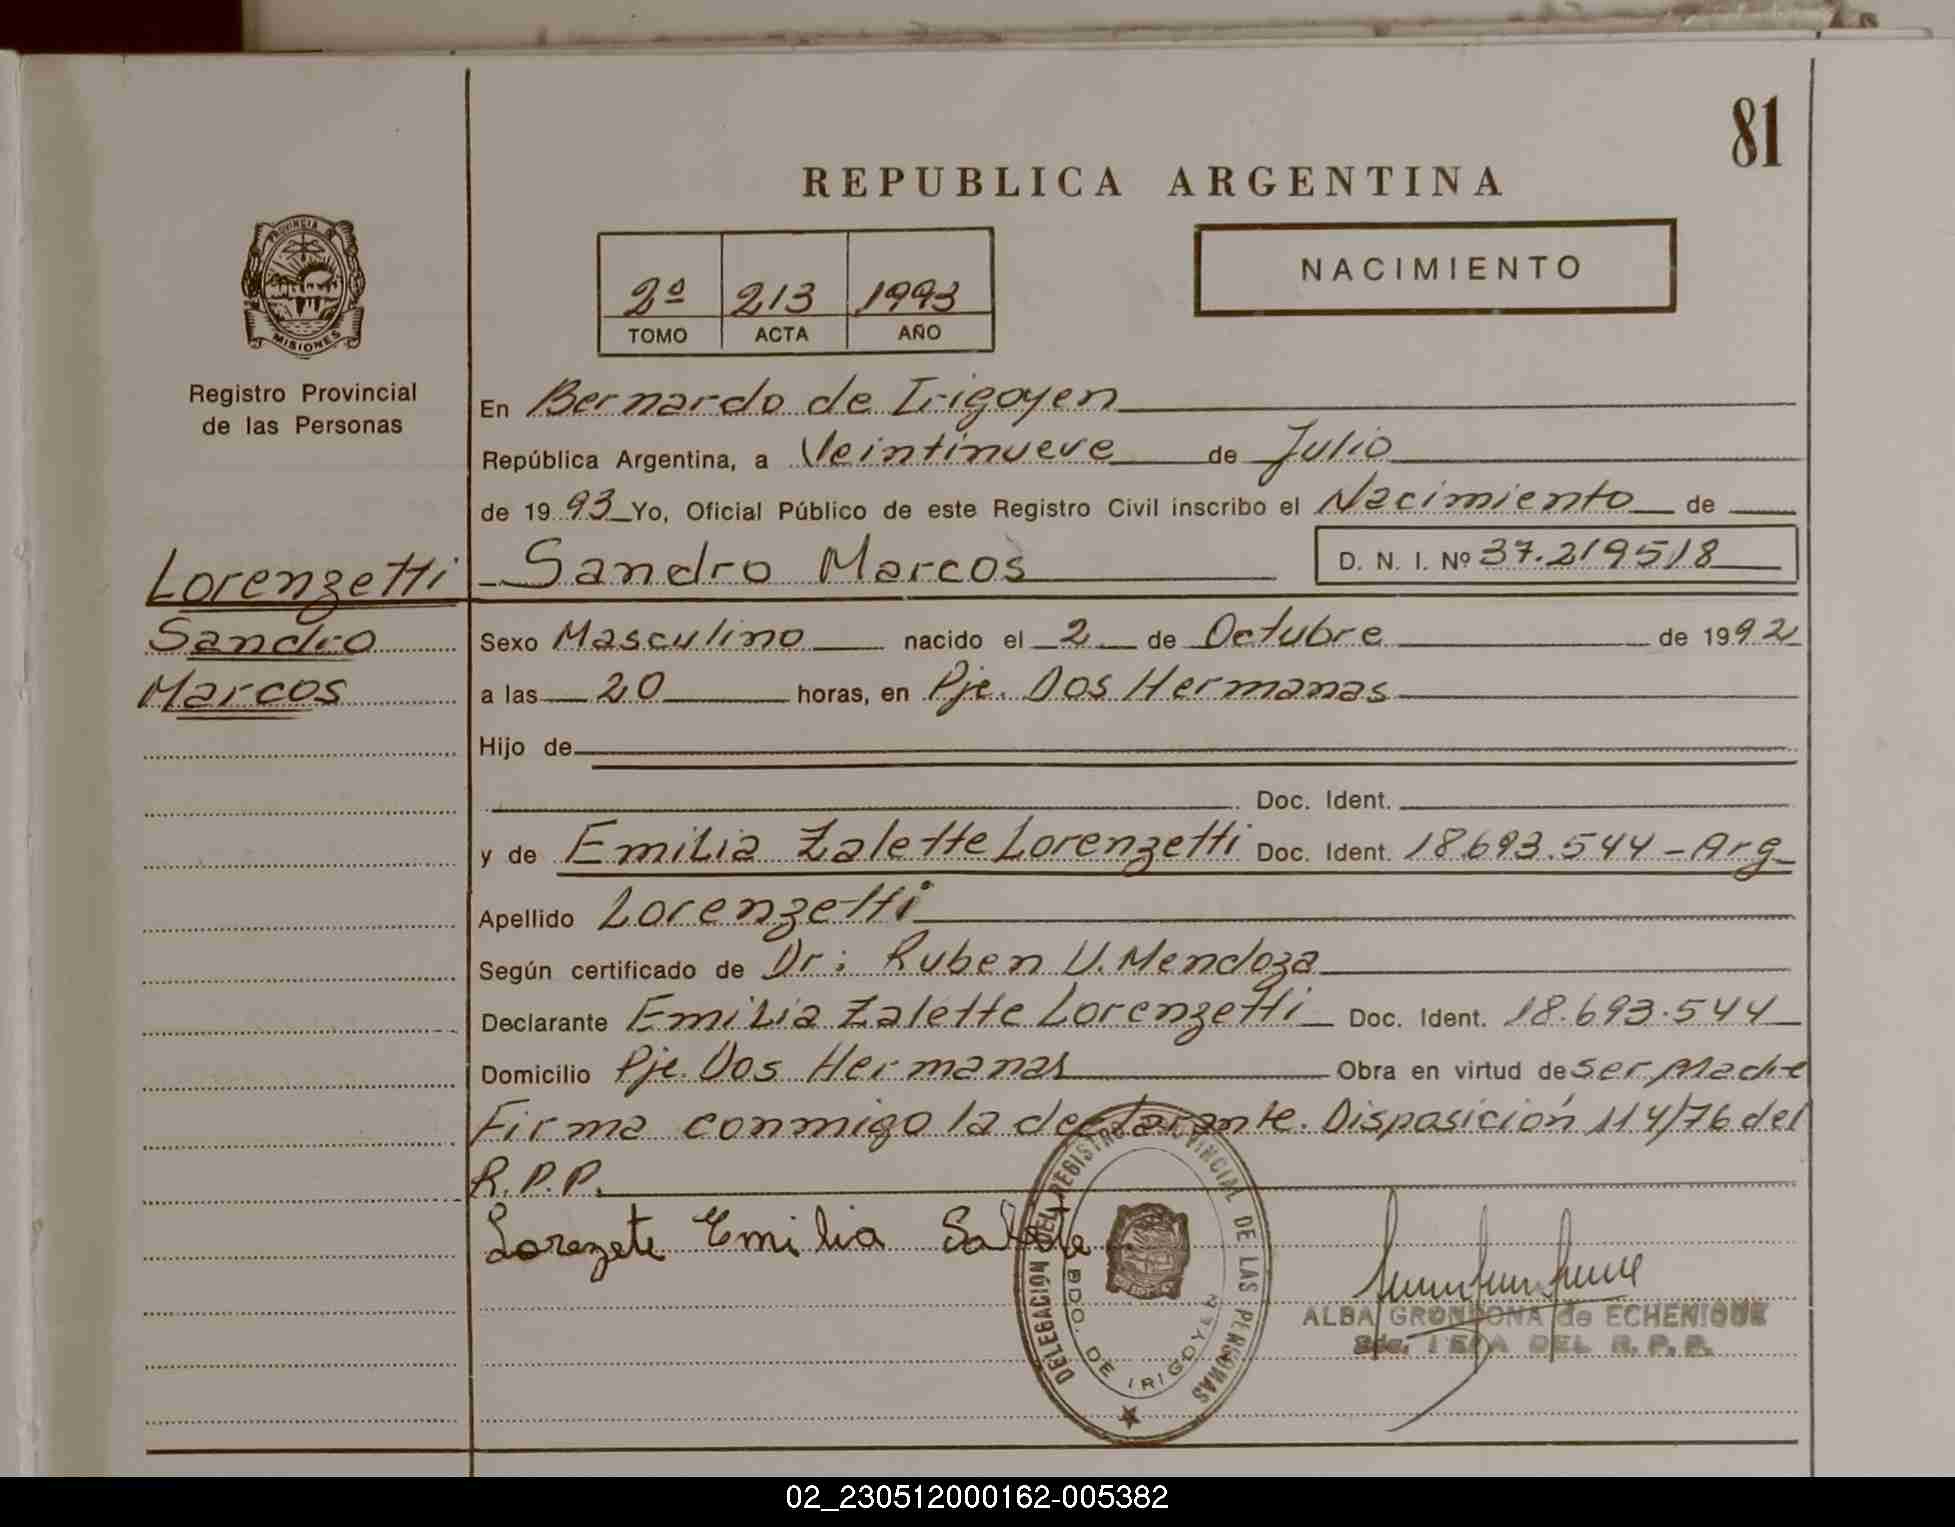 81
REPUBLICA ARGENTINA
PROVINCIA DE
MISIONES
2º 213 1993
TOMO ACTA AÑO
NACIMIENTO
Registro Provincial
de las Personas
En Bernardo de Irigoyen
República Argentina, a Veintinueve de Julio
de 1993 Yo, Oficial Público de este Registro Civil inscribo el Nacimiento de
Lorenzetti Sandro Marcos D. N. I. Nº 37.219518
Sandro Sexo Masculino nacido el 2 de Octubre de 1992
Marcos a las 20 horas, en Pje. Dos Hermanas
Hijo de
Doc. Ident.
y de Emilia Zalette Lorenzetti Doc. Ident. 18.693.544 - Arg
Apellido Lorenzetti
Según certificado de Dr: Ruben U. Mendoza
Declarante Emilia Zalette Lorenzetti Doc. Ident. 18.693.544
Domicilio Pje. Dos Hermanas Obra en virtud de ser Madre
Firma conmigo la declarante. Disposición 114/76 del
R.P.P.
Lorezete Emilia Salete
DELEGACION DEL REGISTRO PROVINCIAL DE LAS PERSONAS
BDO. DE IRIGOYEN
ALBA GRONDONA de ECHENIQUE
DEL R. P. P.
02_230512000162-005382